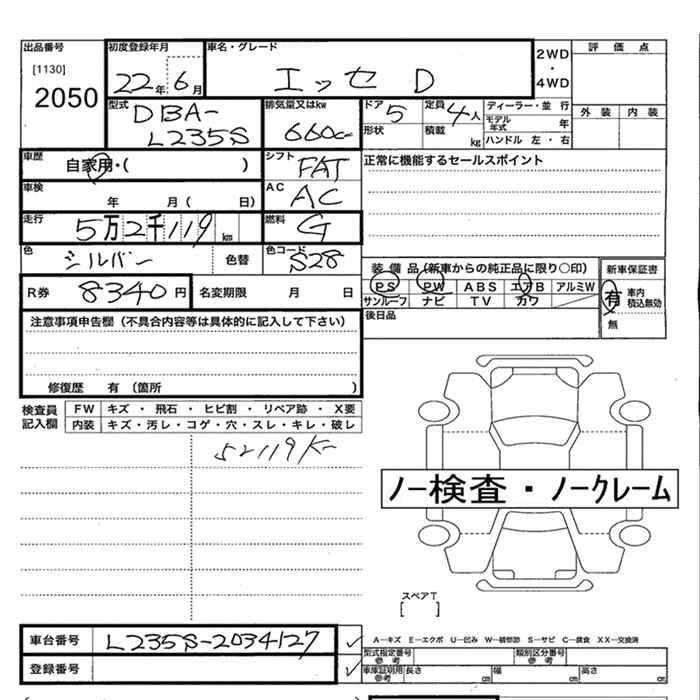 出品番号
[1130]
2050
初度登録年月
22年 6月
車名・グレード
エッセ D
2WD
・
4WD
評 価 点
外 装 内 装
型式
DBA-
L235S
排気量又はkw
660cc
ドア 5
形状
定員 4人
積載 kg
ディーラー・並 行
モデル年式 年
ハンドル 左 ・ 右
車歴
自家用・( )
シフト
FAT
正常に機能するセールスポイント
車検
年 月 ( 日)
AC
AC
走行
5万2千119 km
燃料
G
色
シルバー 色替
色コード
S28
装 備 品 (新車からの純正品に限り○印)
PS PW ABS エアB アルミW
サンルーフ ナビ TV カワ
後日品
新車保証書
有 車内積込無効
無
R券 8340円
名変期限 月 日
注意事項申告欄 (不具合内容等は具体的に記入して下さい)
修復歴 有 (箇所 )
検査員記入欄
FW キズ ・ 飛石 ・ ヒビ割 ・ リペア跡 ・ X要
内装 キズ・汚レ・コゲ・穴・スレ・キレ・破レ
52119K
ノー検査・ノークレーム
スペアT
[ ]
車台番号 L235S-2034127
登録番号
A—キズ E—エクボ U—凹み W—補修跡 S—サビ C—腐食 XX—交換済
型式指定番号 参考
類別区分番号 参考
車庫証明用 参考 長さ cm 幅 cm 高さ cm